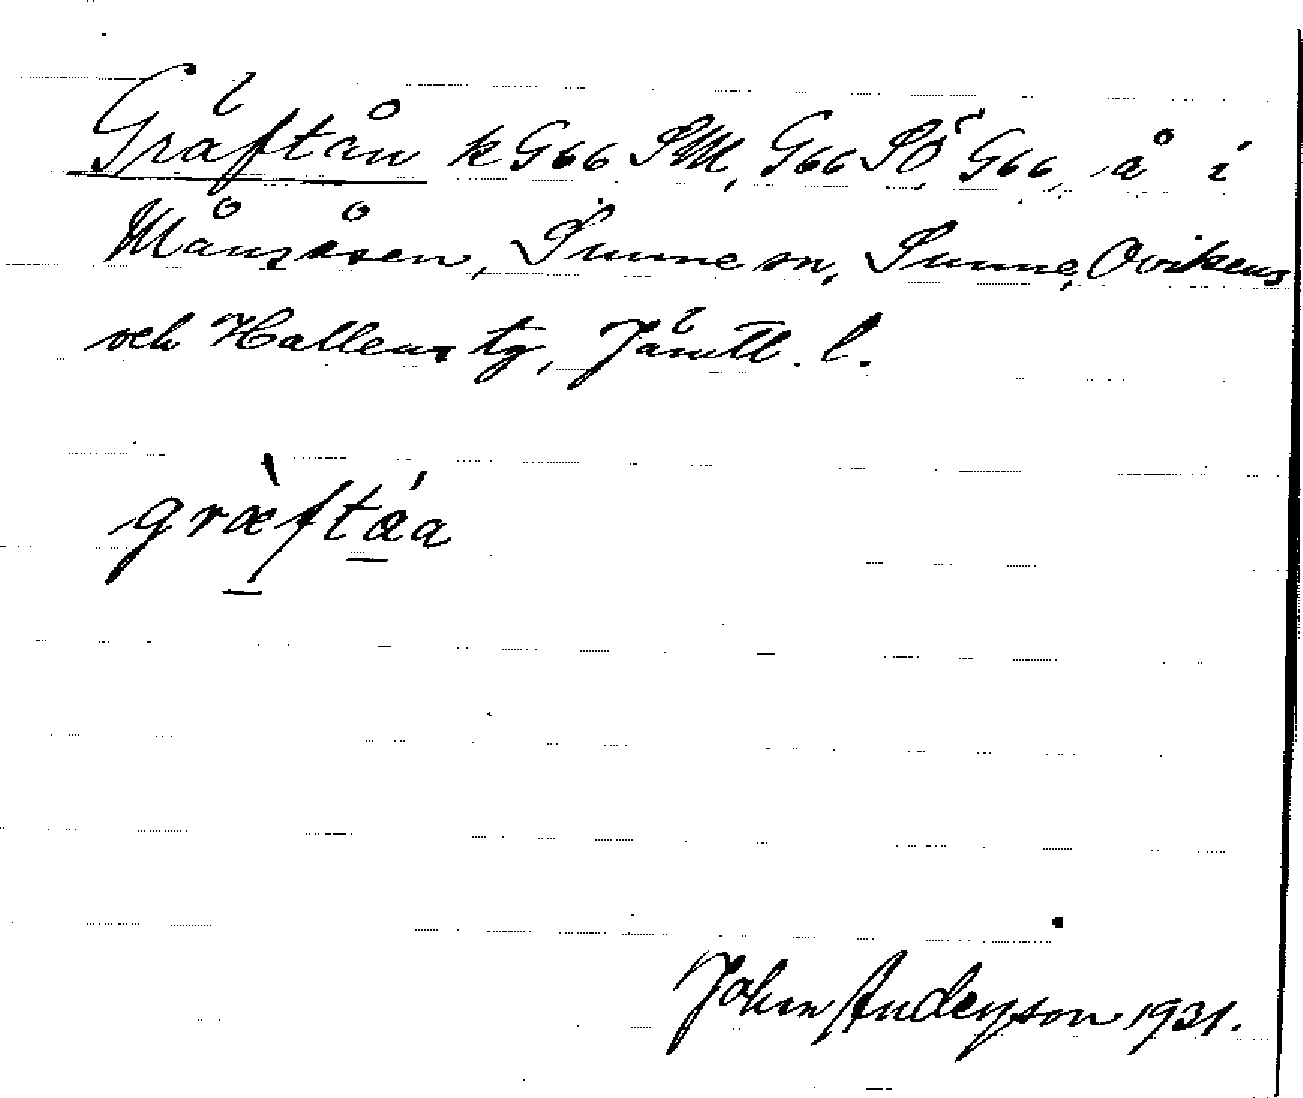 Gräftån k G66 SM, G66 SÖ, G66, å i
Månsåsen, Sunne sn, Sunne, Ovikens
och Hallens tg, Jämtl. l.
græ̀ftǽa
John Anderson 1931.